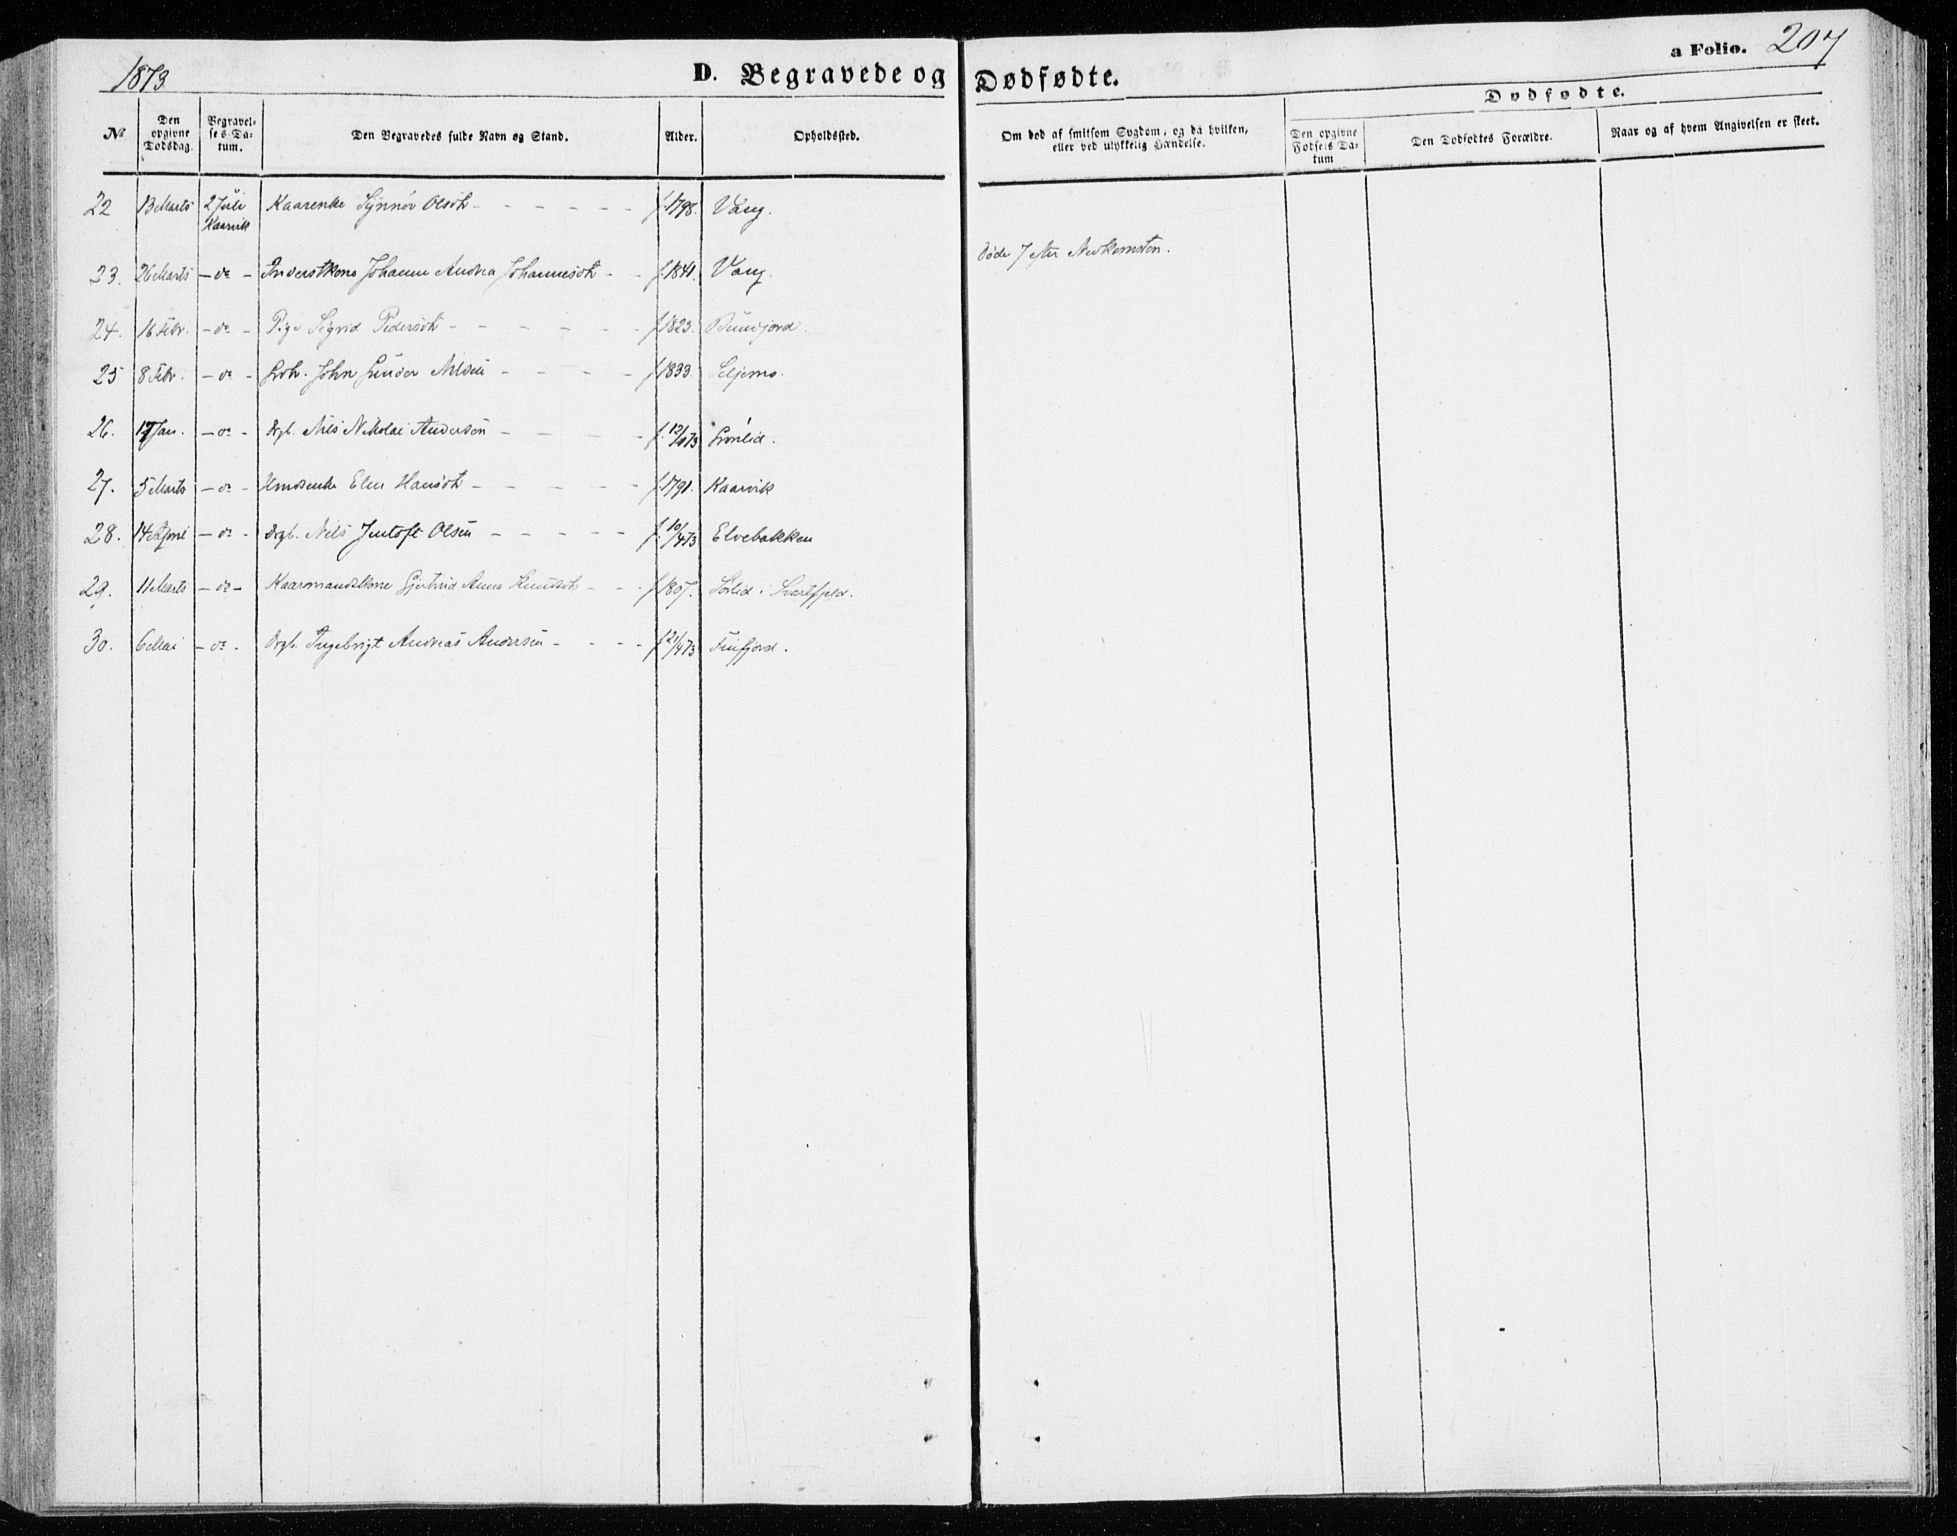 1873.
D. Begravede og Dødfødte.
a Folio. 207
Dødfødte.
No
Den opgivne Dødsdag.
Begravelses-Datum.
Den Begravedes fulde Navn og Stand.
Alder.
Opholdssted.
Om død af smitsom Sygdom, og da hvilken, eller ved ulykkelig Hændelse.
Den opgivne Fødsels Datum
Den Dødfødtes Forældre.
Naar og af hvem Angivelsen er skeet.
22 13 Marts 2 Juli Kaarvik Kaarenke Synnøv Olsdtr f. 1798. Vang.
23. 26 Marts - do - Inderstkone Johanne Andrea Johannesdtr - f. 1841. Vang. Døde J efter Nedkomsten.
24. 16 Febr. - do - Pige Sigrid Pedersdtr f. 1823.
25 8 Febr. - do - John Nilsen f. 1833. Seljemo.
26. 17 Jan. - do - Drgb. Nils Nikolai Andersen f. 12/1 073 Grønlid.
27. 5 Marts - do - Elen Hansdtr f. 1791. Kaarvik
28. 14 April - do - Drgb. Nils Jentoft Olsen f. 10/4 73 Elvebakken
29. 11 Marts - do - Kaarmandskone Gjertrud Anna Knudsdtr f. 1807. Sørlid i
30. 6 Mai - do - Drgb. Ingebrigt Andreas Andersen f. 21/4 73 Finfjord.